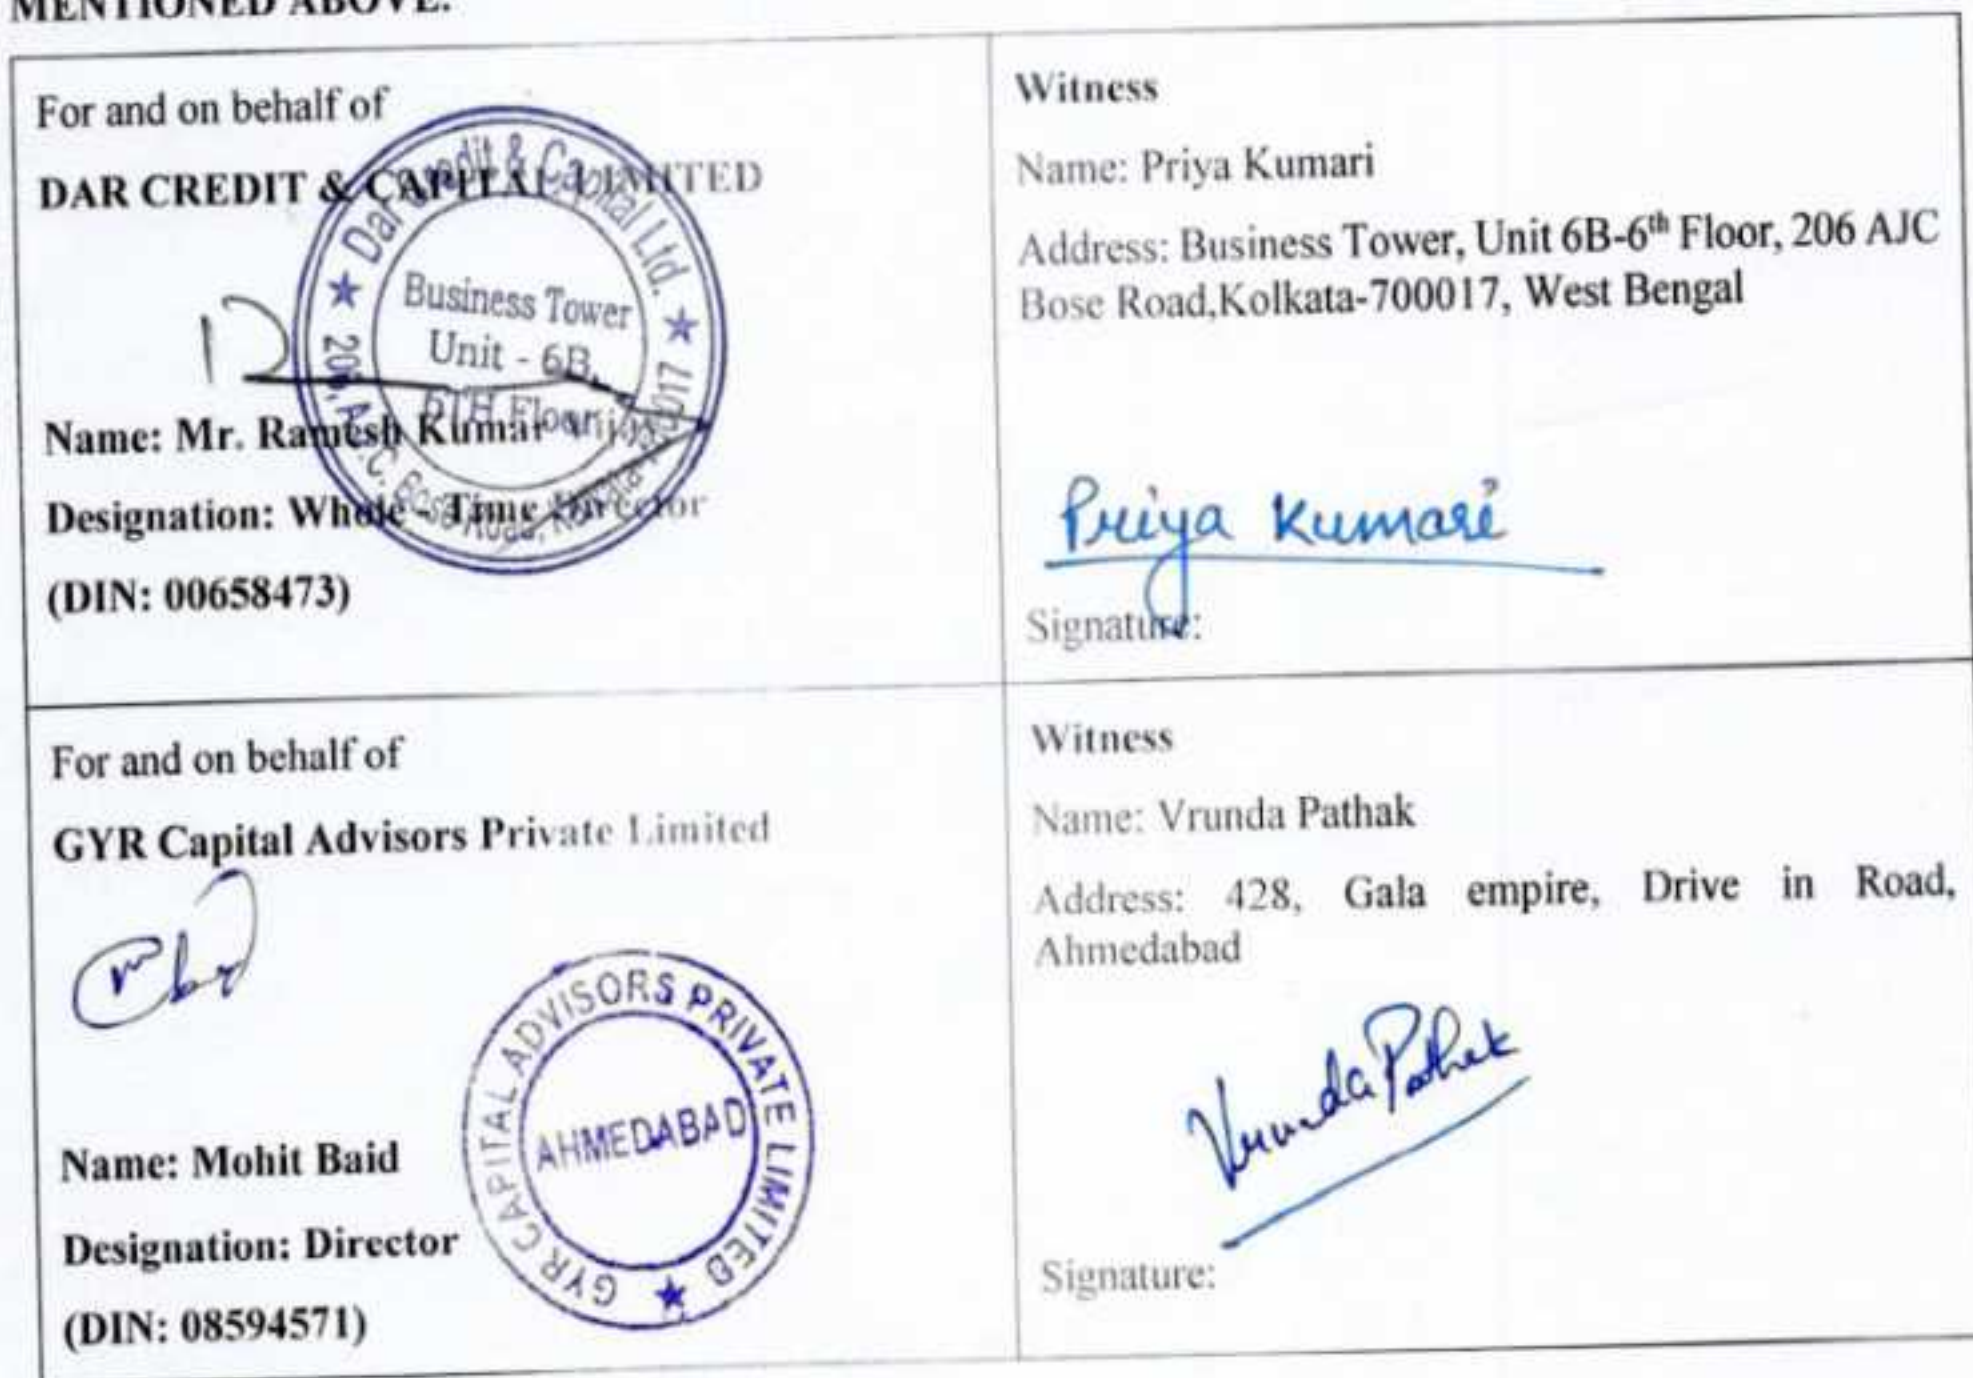 MENTIONED ABOVE.
For and on behalf of
DAR CREDIT & CAPITAL LIMITED
Dar Credit & Capital Ltd.
Business Tower
Unit - 6B,
6TH Floor
206, A.J.C. Bose Road,
Name: Mr. Ramesh Kumar
Designation: Whole - Time Director
(DIN: 00658473)
Witness
Name: Priya Kumari
Address: Business Tower, Unit 6B-6th Floor, 206 AJC
Bose Road,Kolkata-700017, West Bengal
Priya Kumari
Signature:
For and on behalf of
GYR Capital Advisors Private Limited
GYR CAPITAL ADVISORS PRIVATE LIMITED
AHMEDABAD
Name: Mohit Baid
Designation: Director
(DIN: 08594571)
Witness
Name: Vrunda Pathak
Address: 428, Gala empire, Drive in Road,
Ahmedabad
Vrunda Pathak
Signature: